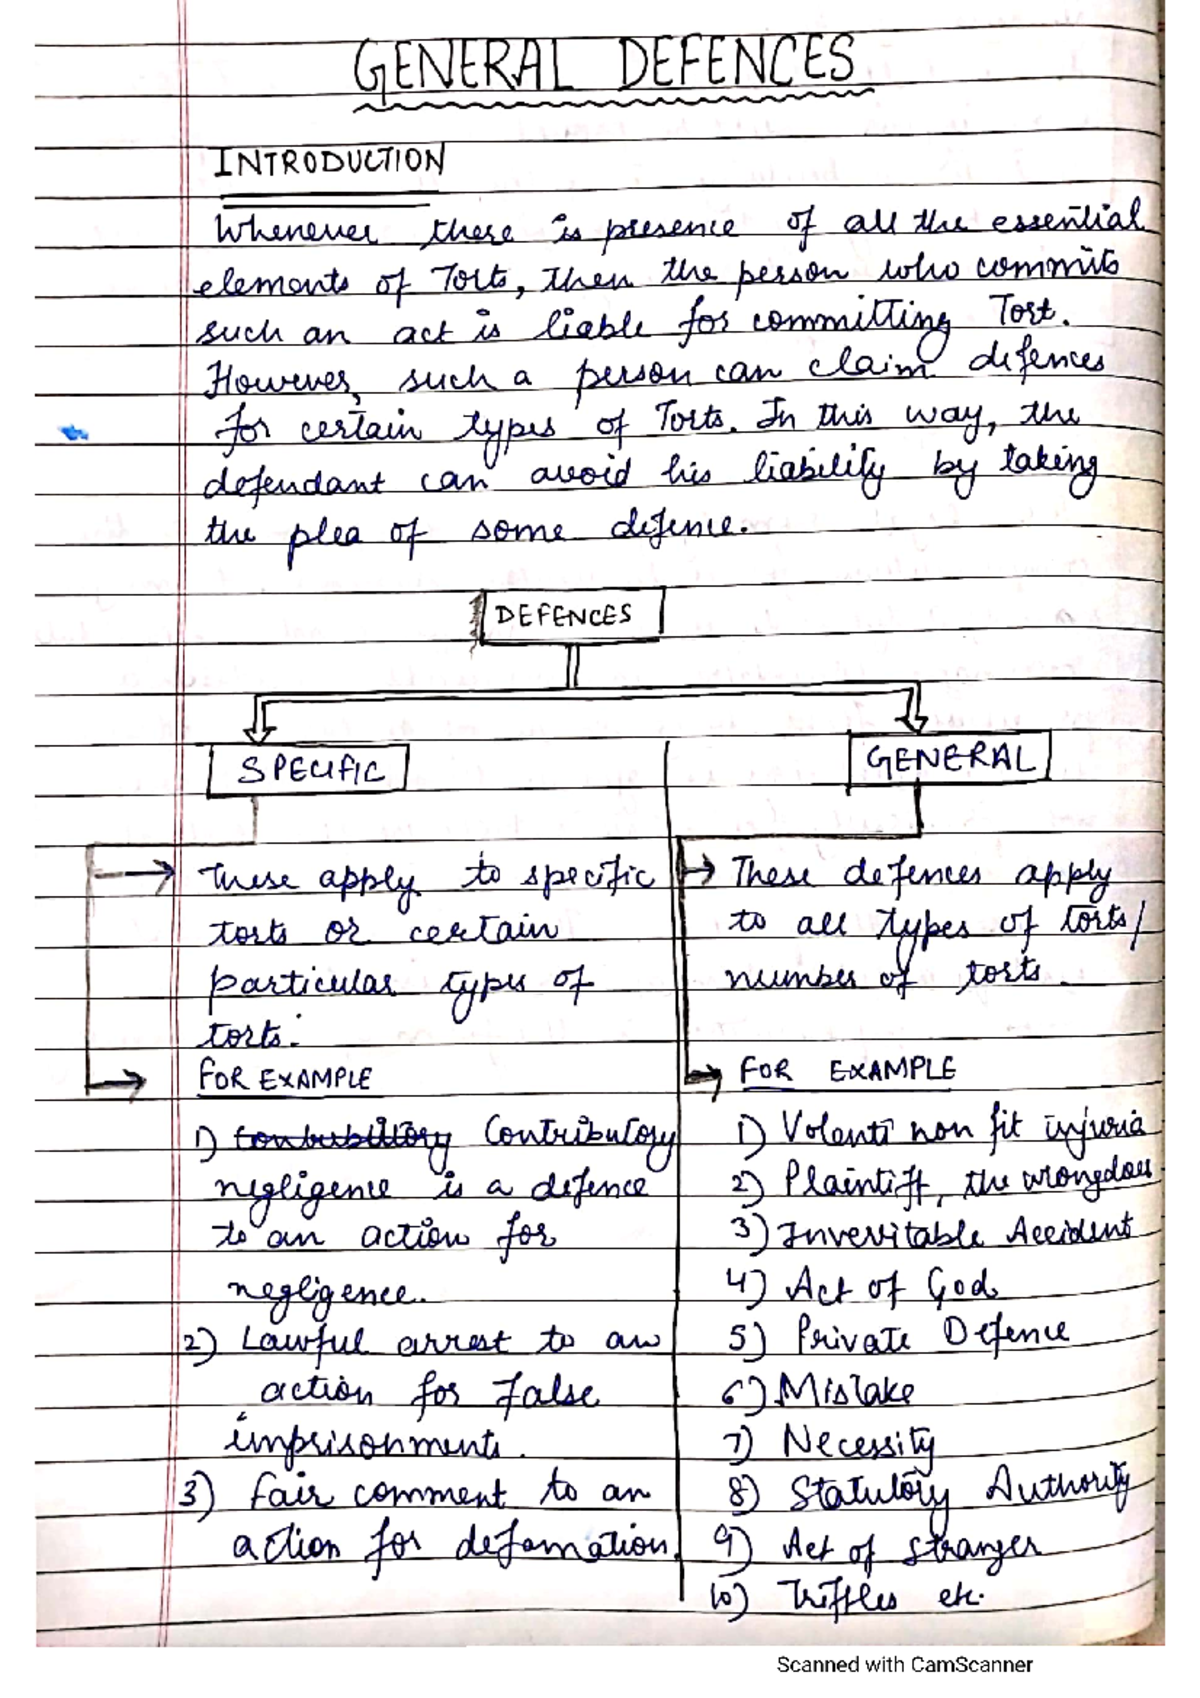 GENERAL DEFENCES
INTRODUCTION
Whenever there is presence of all the essential
elements of Torts, then the person who commits
such an act is liable for committing Tort.
However, such a person can claim defences
for certain types of Torts. In this way, the
defendant can avoid his liability by taking
the plea of some defence.
DEFENCES
SPECIFIC
These apply to specific
torts or certain
particular types of
torts.
FOR EXAMPLE
1) Contributory
negligence is a defence
to an action for
negligence.
2) Lawful arrest to an
action for False
imprisonments.
3) Fair comment to an
action for defamation.
GENERAL
These defences apply
to all types of torts/
number of torts.
FOR EXAMPLE
1) Volenti non fit injuria
2) Plaintiff, the wrongdoer
3) Invevitable Accident
4) Act of God
5) Private Defence
6) Mistake
7) Necessity
8) Statutory Authority
9) Act of stranger
10) Triffles etc.
Scanned with CamScanner